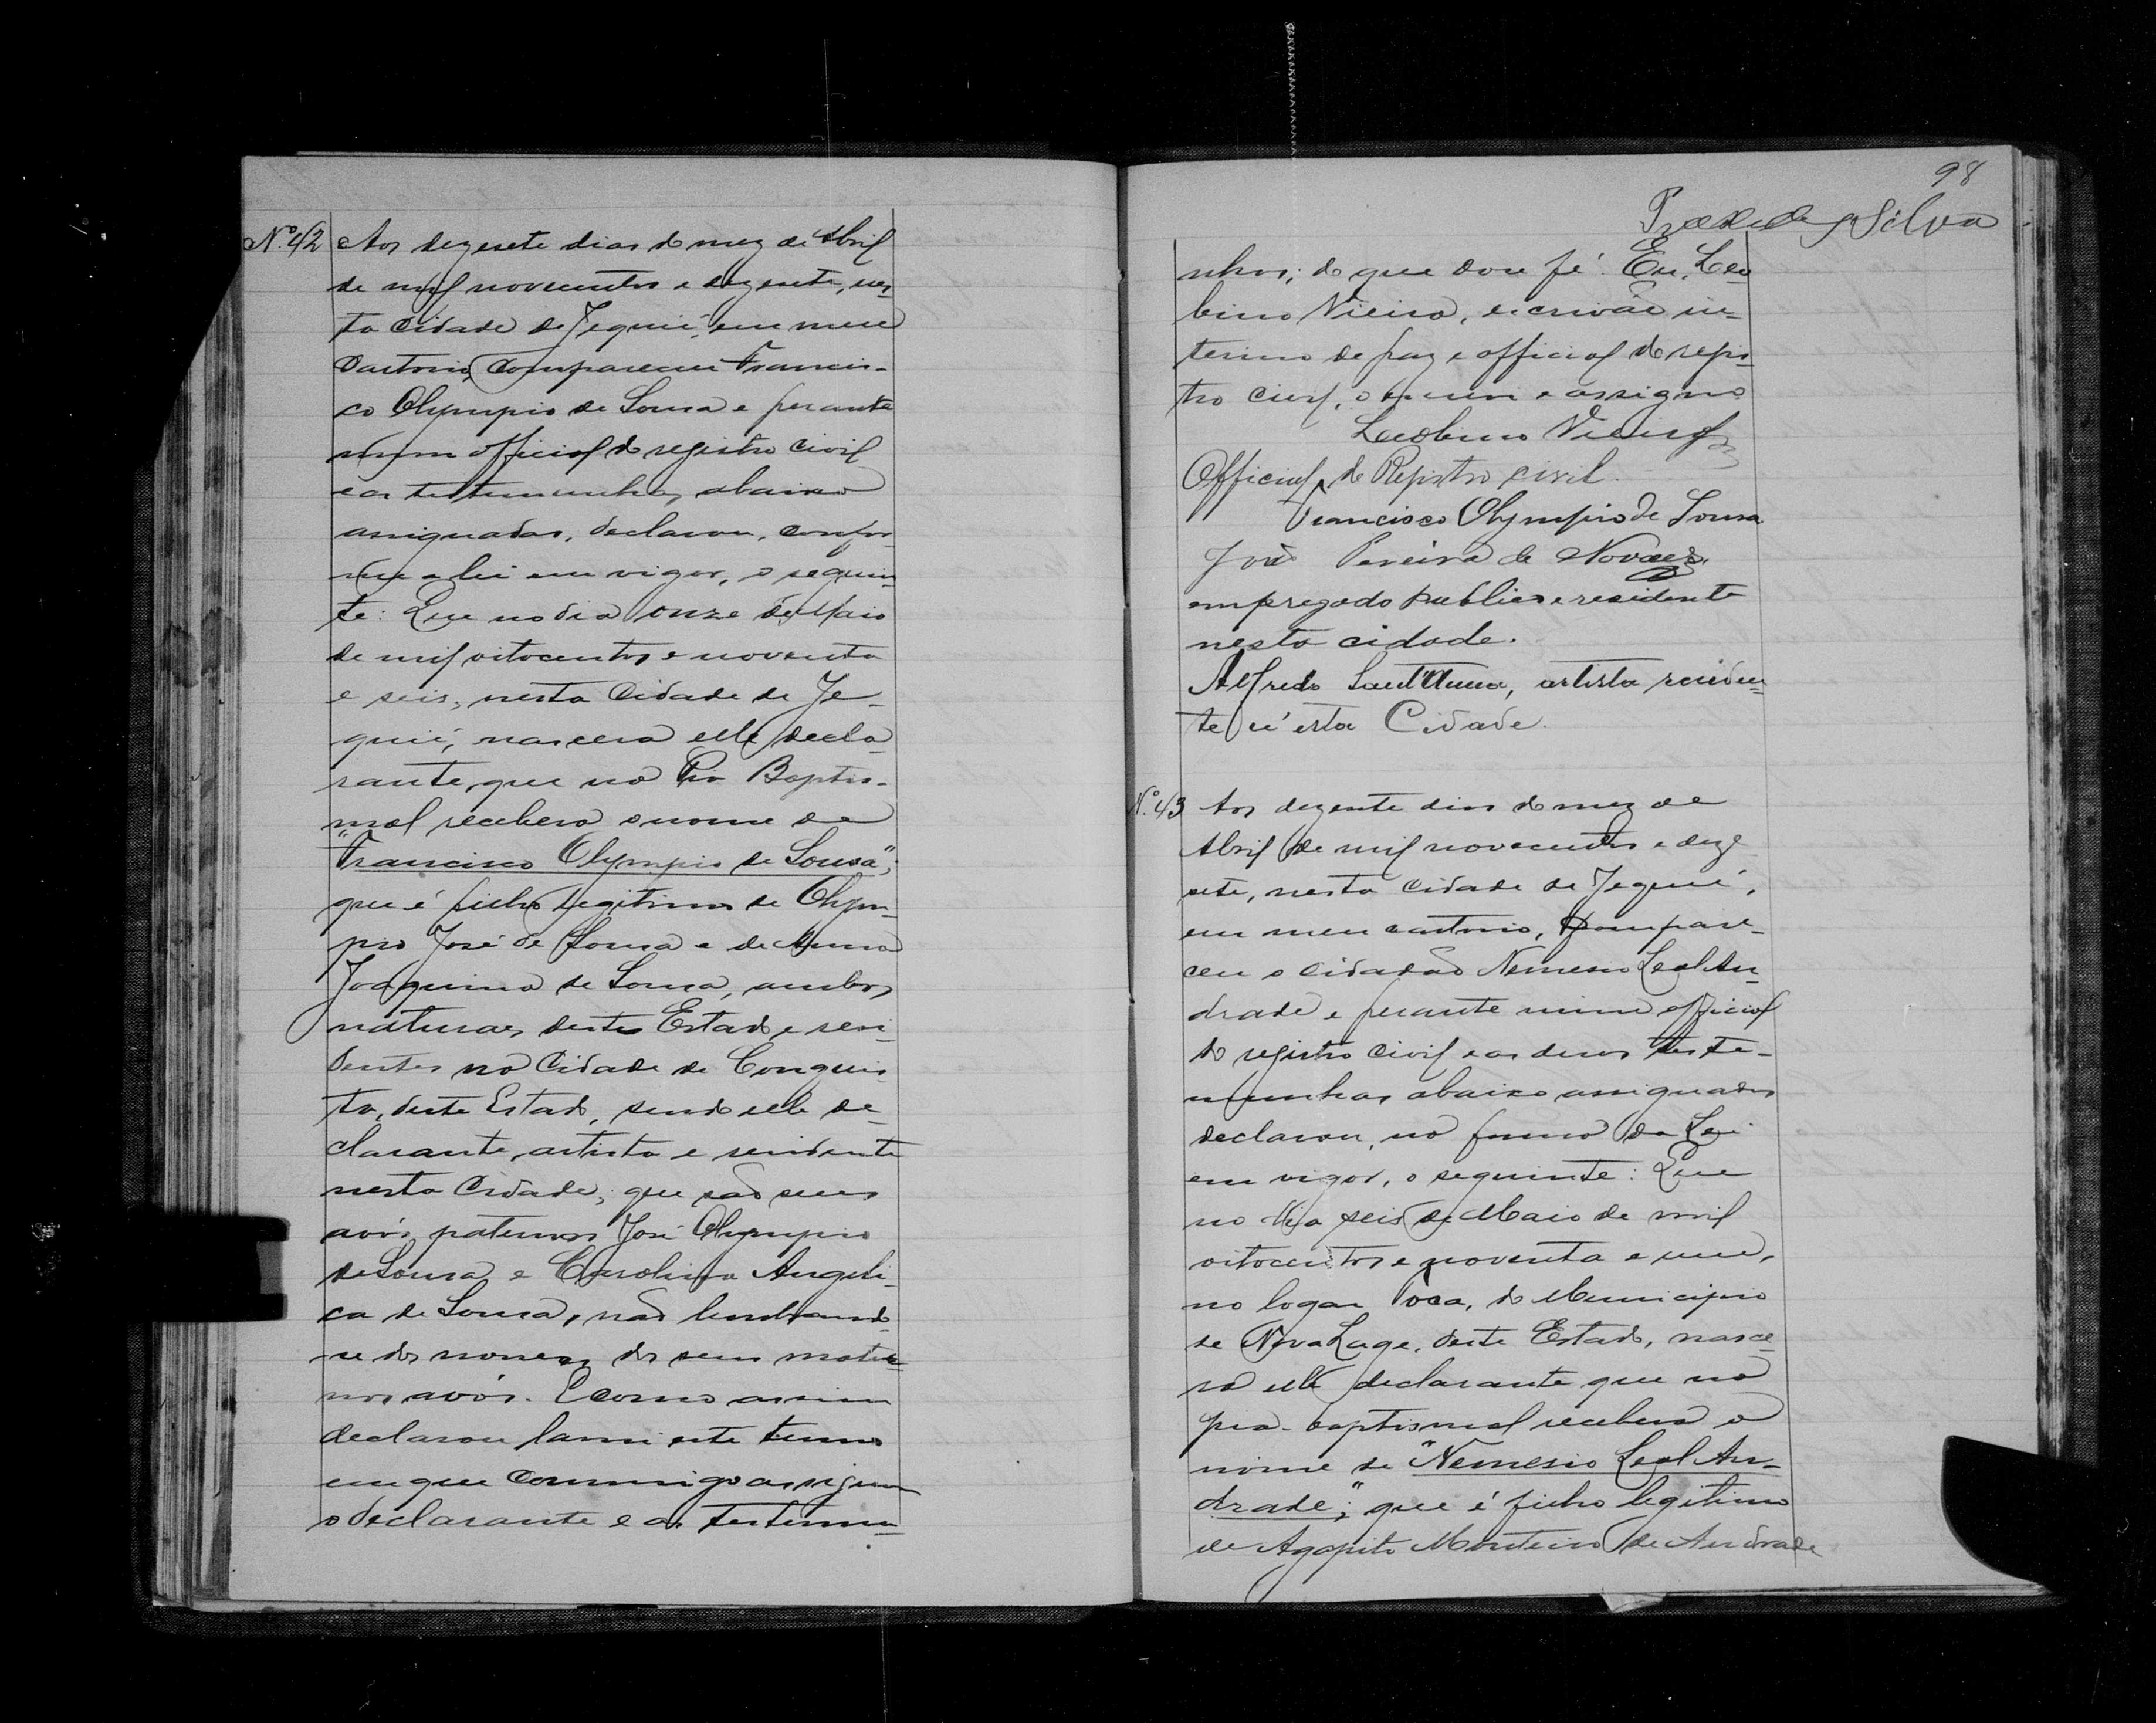 Nº 42 Aos dezesete dias do mez de Abril
de mil novecentos e dezesete, nes-
ta cidade de Jequié, em meu
Cartorio, compareceu Francis-
co Olympio de Sousa e perante
mim official do registro civil
e as testemunhas abaixo
assignadas, declarou, confor-
me a lei em vigor, o seguin-
te: Que no dia onze de Maio
de mil oitocentos e noventa
e seis, nesta Cidade de Je-
quié, nascera elle decla-
rante, que na Pia Baptis-
mal recebera o nome de
"Francisco Olympio de Sousa";
que é filho legitimo de Olym-
pio José de Sousa e de Anna
Joaquina de Sousa, ambos
naturaes deste Estado e resi-
dentes na Cidade de Conquis-
ta, deste Estado, sendo elle de-
clarante, artista e residente
nesta Cidade; que são seus
avós paternos José Olympio
de Sousa e Carolina Angeli-
ca de Sousa, não lembrando-
se dos nomes dos seus mater-
nos avós. E como assim
declarou lavrei este termo
em que commigo assignam
o declarante e as testemu-
98
Silva
nhas; do que dou fé. Eu, Leo-
bino Vieira, escrivão in-
terino de paz e official do regis-
tro civil, o escrevi e assigno
Leobino Vieira
Official do Registro civil.
Francisco Olympio de Sousa
José Pereira de Novaes,
empregado publico e residente
nesta cidade.
Alfredo Sant'Anna, artista residen-
te n'esta Cidade.
Nº 43 Aos dezesete dias do mez de
Abril de mil novecentos e deze-
sete, nesta Cidade de Jequié,
em meu cartorio, compare-
ceu o cidadão Nemesio Leal An-
drade e perante mim official
do registro civil e as duas teste-
munhas abaixo assignadas
declarou, na forma da Lei
em vigor, o seguinte: Que
no dia seis de Maio de mil
oitocentos e noventa e um,
no logar Toca, do Municipio
de Nova Lage, deste Estado, nasce-
ra elle declarante que na
pia baptismal recebera o
nome de "Nemesio Leal An-
drade"; que é filho legitimo
de Agapito Monteiro de Andrade